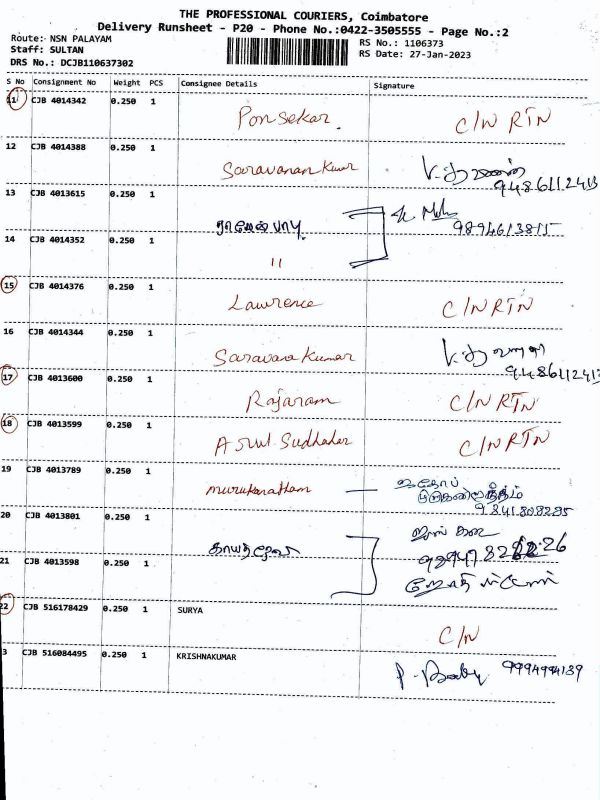 THE PROFESSIONAL COURIERS, Coimbatore
Delivery Runsheet - P20 - Phone No.:0422-3505555 - Page No.:2
Route:- NSN PALAYAM RS No.: 1106373
Staff: SULTAN RS Date: 27-Jan-2023
DRS No.: DCJB110637302
S No Consignment No Weight PCS Consignee Details Signature
11 CJB 4014342 0.250 1
Ponsekar. C/N RTN
12 CJB 4014388 0.250 1
Saravanan Kumar
9486112413
13 CJB 4013615 0.250 1
9894613815
14 CJB 4014352 0.250 1
"
15 CJB 4014376 0.250 1
Lawrence C/N RTN
16 CJB 4014344 0.250 1
Saravana Kumar
9486112413
17 CJB 4013600 0.250 1
Rajaram C/N RTN
18 CJB 4013599 0.250 1
Arul Sudhahar C/N RTN
19 CJB 4013789 0.250 1
murukaratham
9841808285
20 CJB 4013801 0.250 1
21 CJB 4013598 0.250 1
22 CJB 516178429 0.250 1 SURYA
C/N
3 CJB 516084495 0.250 1 KRISHNAKUMAR
P. Baby 9994994139